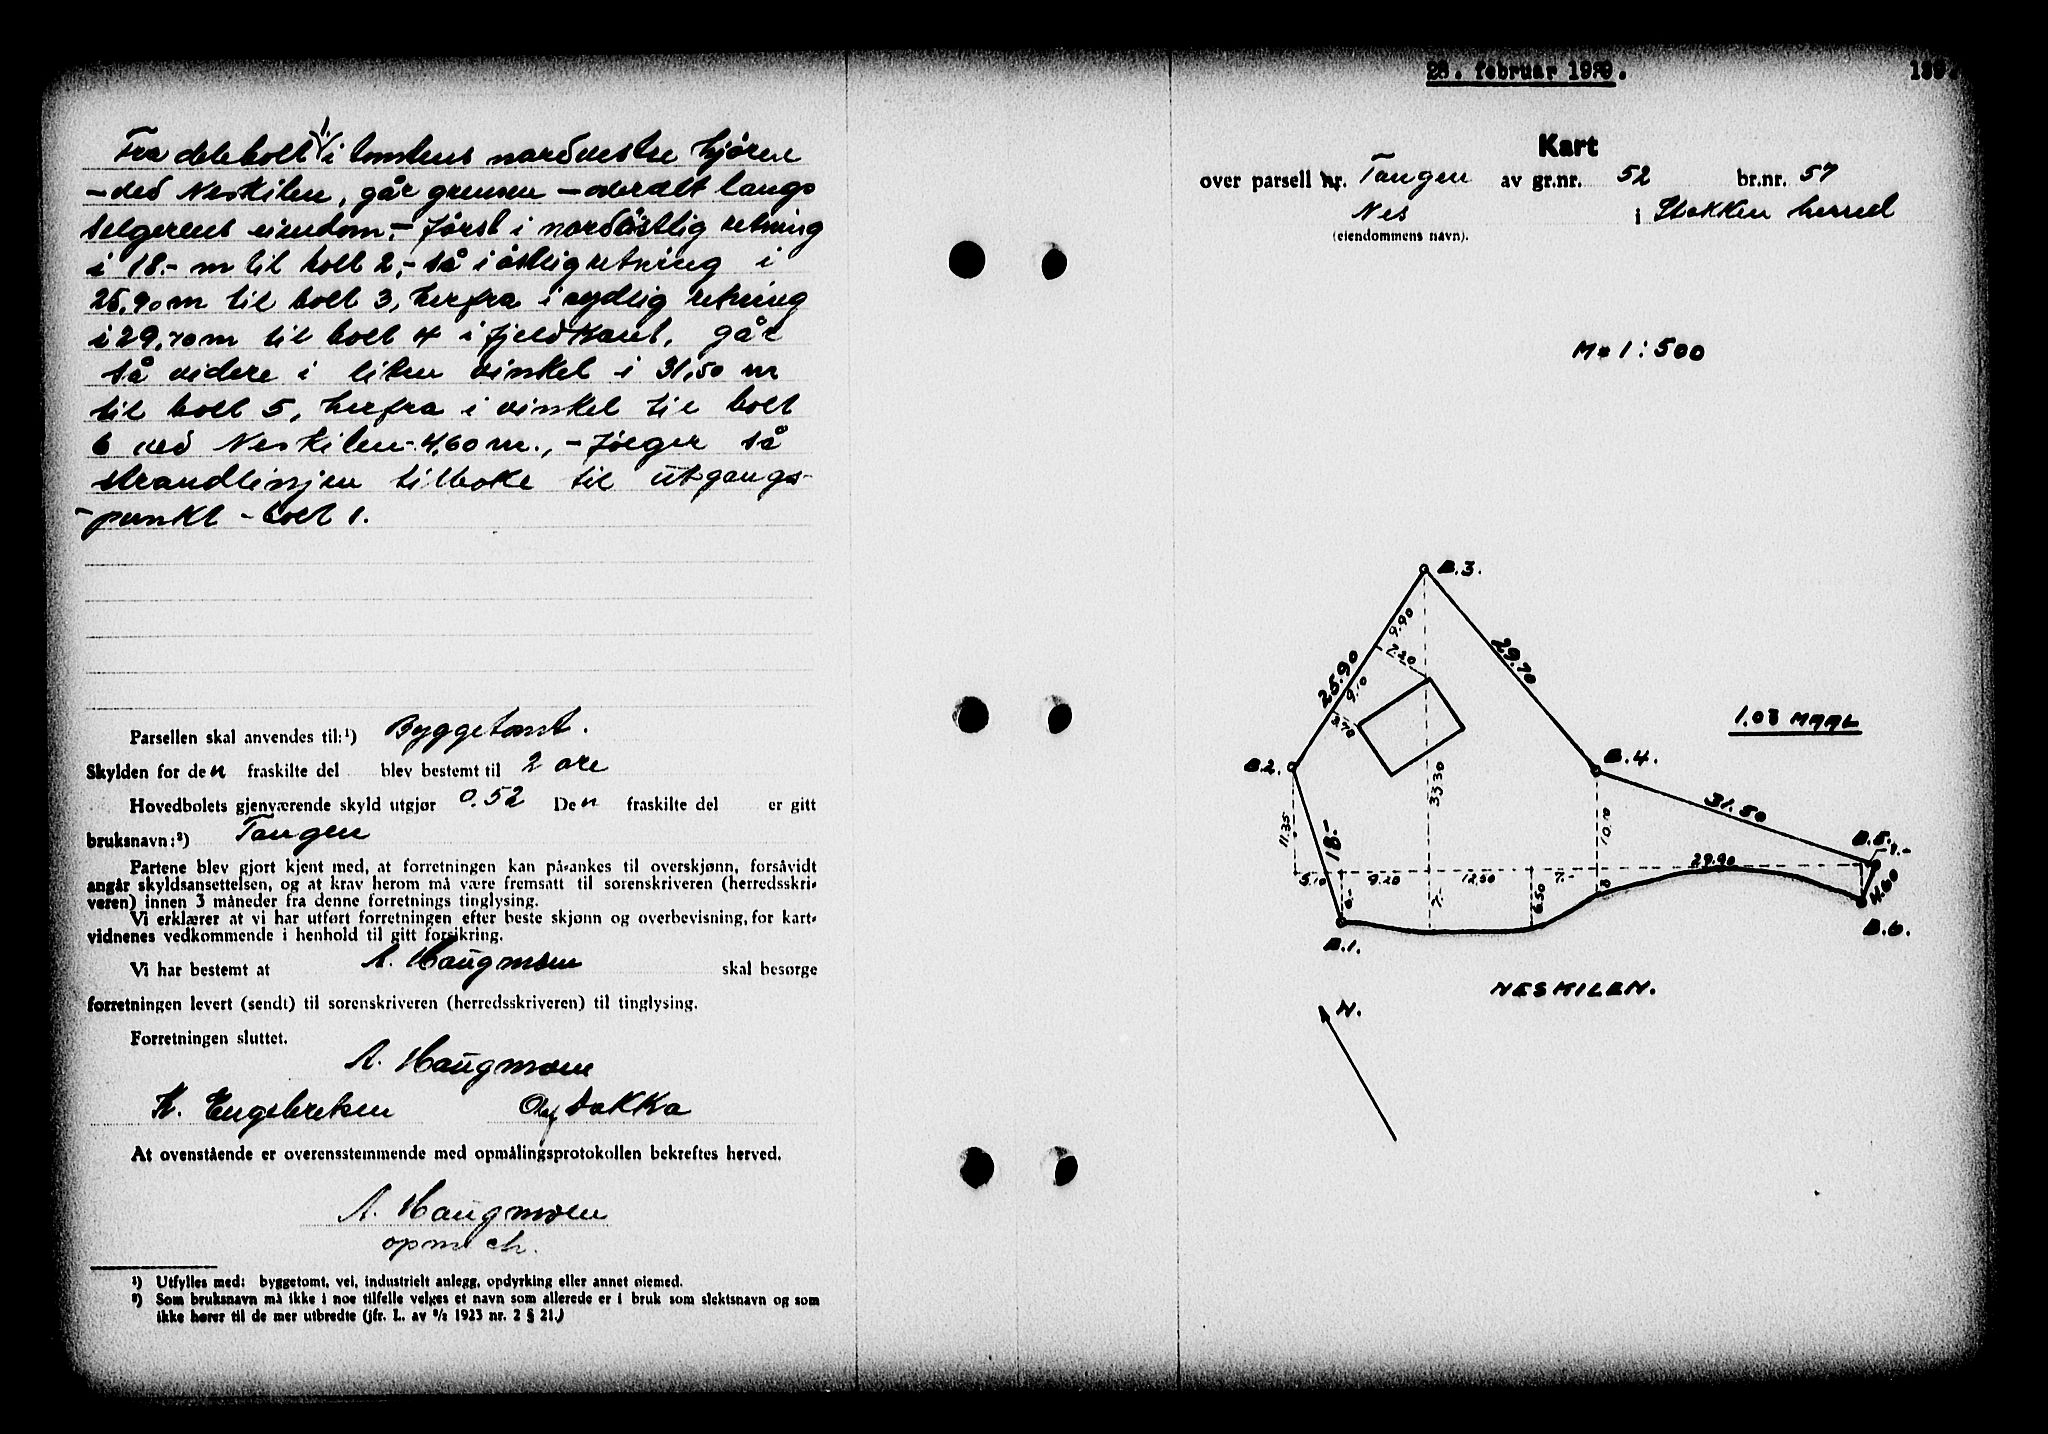 Fra delebolt 1. i tomtens nordvestre hjørne
- ved Neskilen, går grensen - overalt langs
selgerens eiendom, - først i nordöstlig retning
i 18.- m til bolt 2, - så i östlig retning i
25,90 m til bolt 3, herfra i sydlig retning
i 29,70 m til bolt 4 i fjeldkant, går
så videre i liten vinkel i 31,50 m
til bolt 5, herfra i vinkel til bolt
6 ved Neskilen - 4,60 m., - følger så
strandlinjen tilbake til utgangs-
- punkt - bolt 1.
Parsellen skal anvendes til:¹) Byggetomt.
Skylden for den fraskilte del blev bestemt til 2 øre
Hovedbølets gjenværende skyld utgjør 0.52 Den fraskilte del er gitt
bruksnavn:²) Tangen
Partene blev gjort kjent med, at forretningen kan på-ankes til overskjønn, forsåvidt
angår skyldsansettelsen, og at krav herom må være fremsatt til sorenskriveren (herredsskri-
veren) innen 3 måneder fra denne forretnings tinglysing.
Vi erklærer at vi har utført forretningen efter beste skjønn og overbevisning, for kart-
vidnenes vedkommende i henhold til gitt forsikring.
Vi har bestemt at A. Haugmoen skal besørge
forretningen levert (sendt) til sorenskriveren (herredsskriveren) til tinglysing.
Forretningen sluttet.
A. Haugmoen
K. Engebretsen Olaf Dakka
At ovenstående er overensstemmende med opmålingsprotokollen bekreftes herved.
A. Haugmoen
opm ch.
¹) Utfylles med: byggetomt, vei, industrielt anlegg, opdyrking eller annet øiemed.
²) Som bruksnavn må ikke i noe tilfelle velges et navn som allerede er i bruk som slektsnavn og som
ikke hører til de mer utbredte (jfr. L. av ⁹/₂ 1923 nr. 2 § 21.)
februar
Kart
over parsell nr. Tangen av gr.nr. 52 br.nr. 57
Nes i Stokken herred
(eiendommens navn).
M= 1:500
B.3.
9.90
7.20
25.90
9.10
29.70
3.70
1.03 MAAL
B.2.
B.4.
33.30
31.50
11.35
18.-
10.10
B.5.
29.90
5.10
9.20
12.50
7.-
7.-
6.50
4.60
B.1.
B.6.
NESKILEN.
N.